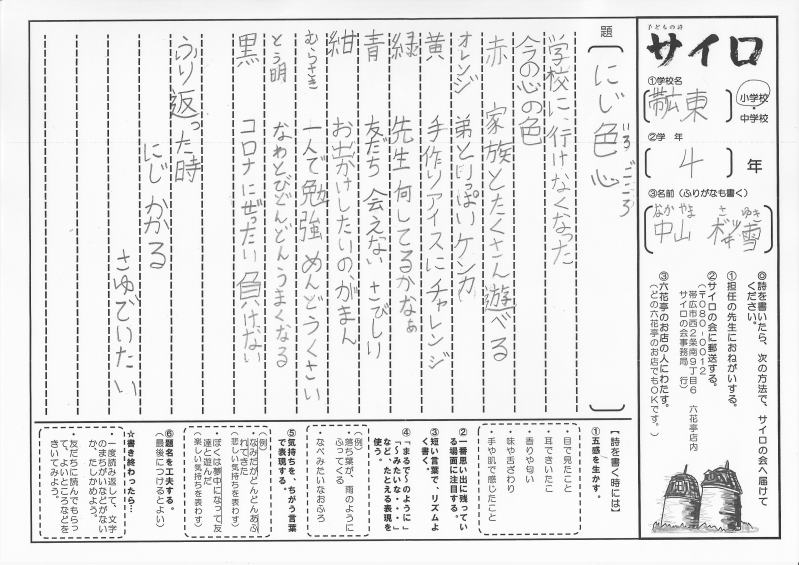 子どもの詩
サイロ
①学校名
帯広東
小学校
・
中学校
②学年
4
年
③名前(ふりがなも書く)
なか やま さ ゆき
中山 桜雪
◎詩を書いたら、次の方法で、サイロの会へ届けて
ください。
①担任の先生におねがいする。
②サイロの会に郵送する。
(〒080-0012
帯広市西2条南9丁目6 六花亭店内
サイロの会事務局 行)
③六花亭のお店の人にわたす。
(どの六花亭のお店でもOKです。)
題
にじ色心
いろ ごころ
学校に、行けなくなった
今の心の色
赤 家族とたくさん遊べる
オレンジ 弟といっぱいケンカ
黄 手作りアイスにチャレンジ
緑 先生 何してるかなぁ
青 友だち 会えない さびしい
紺 お出かけしたいの、がまん
むらさき 一人で勉強 めんどうくさい
とう明 なわとびどんどんうまくなる
黒 コロナにぜったい 負けない
ふり返った時
にじ かかる
さわいでいたい
【詩を書く時には】
①五感を生かす。
・目で見たこと
・耳できいたこと
・香りや匂い
・味や舌ざわり
・手や肌で感じたこと
②一番思い出に残ってい
る場面に注目する。
③短い言葉で、リズムよ
く書く。
④「まるで〜のように」
「〜みたいな・・・」
など、たとえる表現を
使う。
(例)
落ち葉が、雨のように
ふってくる
なべみたいなおふろ
⑤気持ちを、ちがう言葉
で表現する。
(例)
・なみだがどんどんあふ
れてきた
(悲しい気持ちを表わす)
・ぼくは夢中になって友
達と遊んだ
(楽しい気持ちを表わす)
⑥題名を工夫する。
(最後につけるとよい)
☆書き終わったら…
・一度読み返して、文字
のまちがいなどがない
か、たしかめよう。
・友だちに読んでもらっ
て、よいところなどを
きいてみよう。